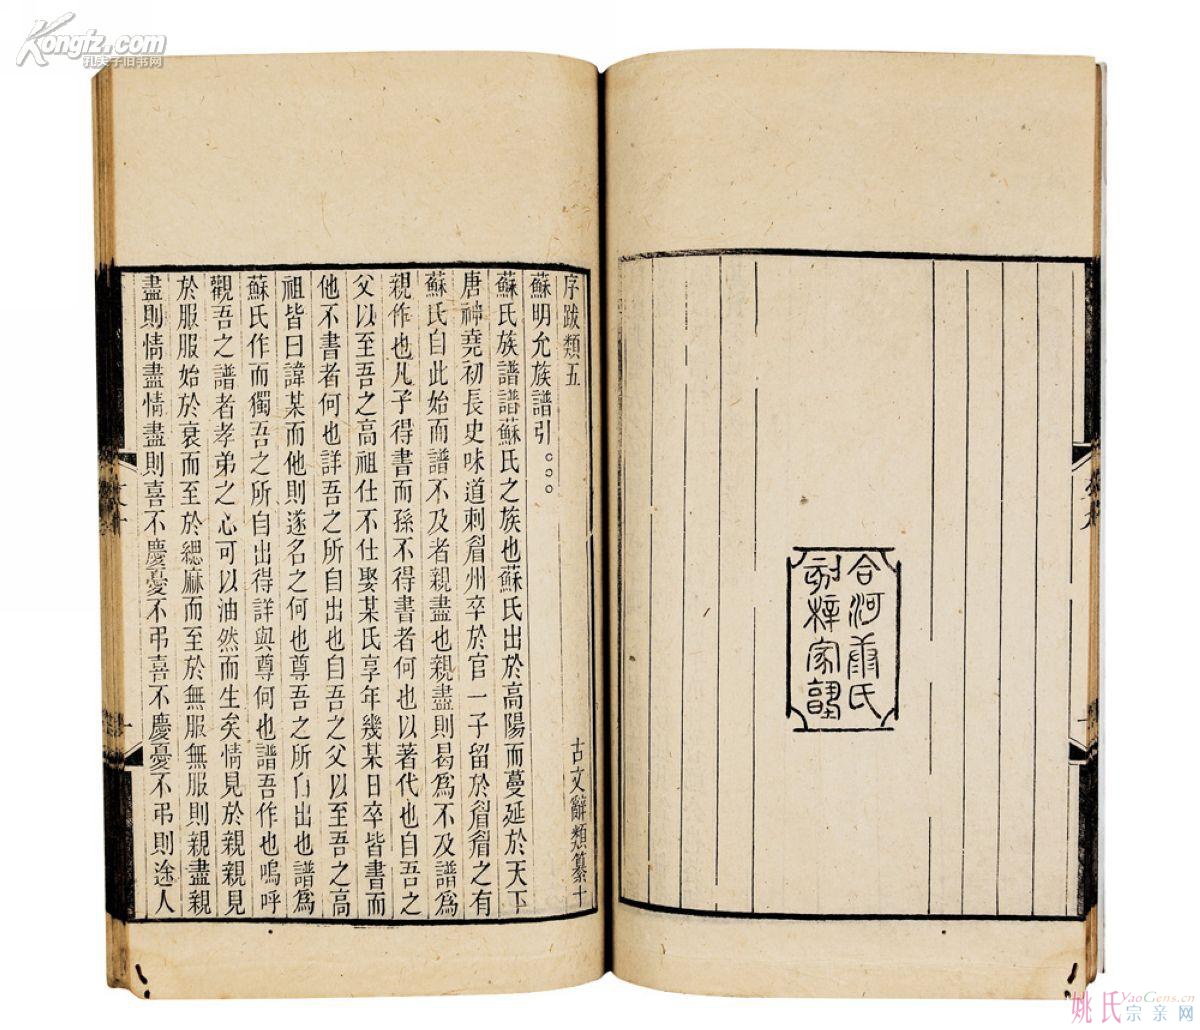 Kongfz.com
孔夫子旧书网
合河康氏
刻梓家塾
序跋類五
古文辭類纂十
蘇明允族譜引○○○
蘇氏族譜譜蘇氏之族也蘇氏出於高陽而蔓延於天下
唐神堯初長史味道刺眉州卒於官一子留於眉眉之有
蘇氏自此始而譜不及者親盡也親盡則曷爲不及譜爲
親作也凡子得書而孫不得書者何也以著代也自吾之
父以至吾之高祖仕不仕娶某氏享年幾某日卒皆書而
他不書者何也詳吾之所自出也自吾之父以至吾之高
祖皆曰諱某而他則遂名之何也尊吾之所自出也譜爲
蘇氏作而獨吾之所自出得詳與尊何也譜吾作也嗚呼
觀吾之譜者孝弟之心可以油然而生矣情見於親親見
於服服始於衰而至於緦麻而至於無服無服則親盡親
盡則情盡情盡則喜不慶憂不弔喜不慶憂不弔則途人
姚氏宗亲网
YaoGens.cn